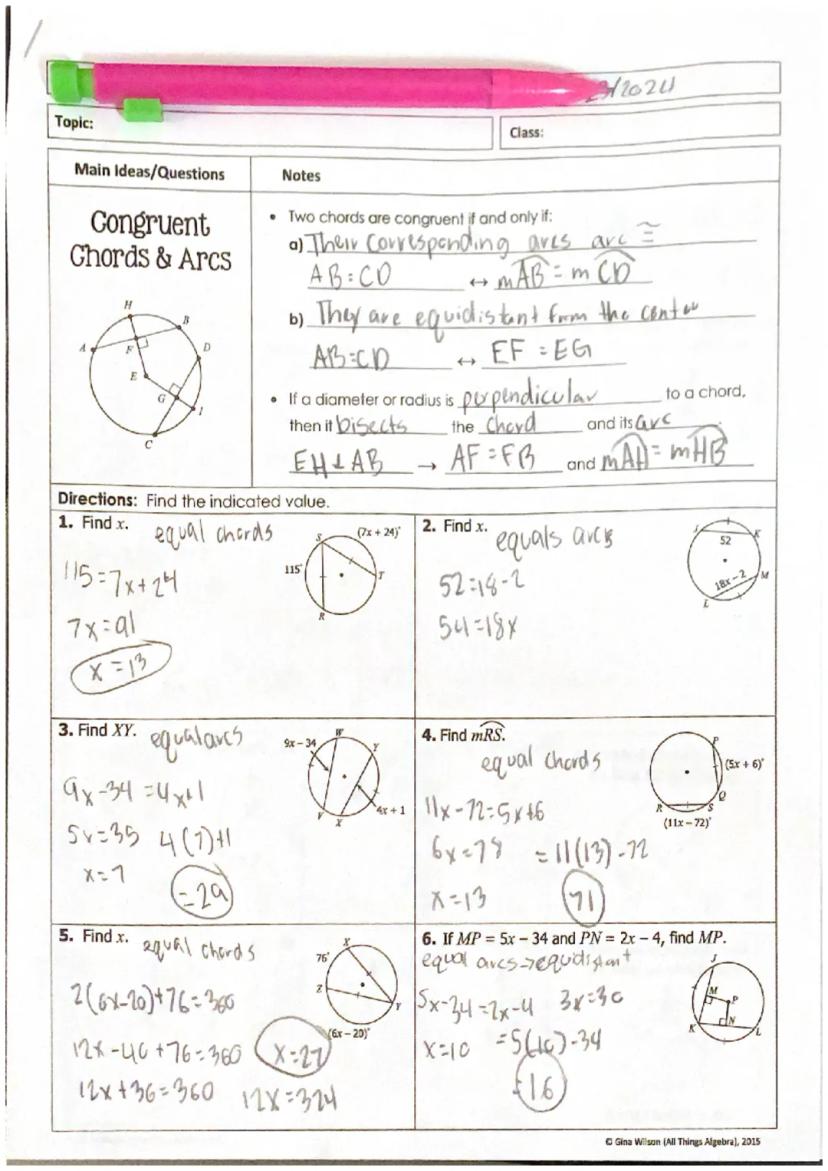 23/2024
Topic:
Class:
Main Ideas/Questions
Notes
Congruent
Chords & Arcs
H
B
A
F
D
E
G
I
C
• Two chords are congruent if and only if:
a) Their corresponding arcs arc ≅
AB=CD ↔ mAB = mCD
b) They are equidistant from the center
AB=CD ↔ EF = EG
• If a diameter or radius is perpendicular to a chord,
then it bisects the chord and its arc.
EH⊥AB → AF = FB and mAH = mHB
Directions: Find the indicated value.
1. Find x. equal chords
115=7x+24
7x=91
x=13
S
(7x + 24)°
115°
T
R
2. Find x.
equals arcs
52=18-2
54=18x
J
K
52
18x – 2
M
L
3. Find XY. equal arcs
9x-34=4x+1
5x=35 4(7)+1
x=7
=29
W
9x – 34
Y
4x + 1
V
X
4. Find mRS.
equal chords
11x-72=5x+6
6x=78 =11(13)-72
x=13 71
P
(5x + 6)°
Q
R
S
(11x – 72)°
5. Find x. equal chords
2(6x-20)+76=360
12x-40+76=360 x=27
12x+36=360 12x=324
X
76°
Z
Y
(6x – 20)°
6. If MP = 5x – 34 and PN = 2x – 4, find MP.
equal arcs→equidistant
5x-34=2x-4 3x=30
x=10 =5(10)-34
=16
J
M
P
N
K
L
© Gina Wilson (All Things Algebra), 2015